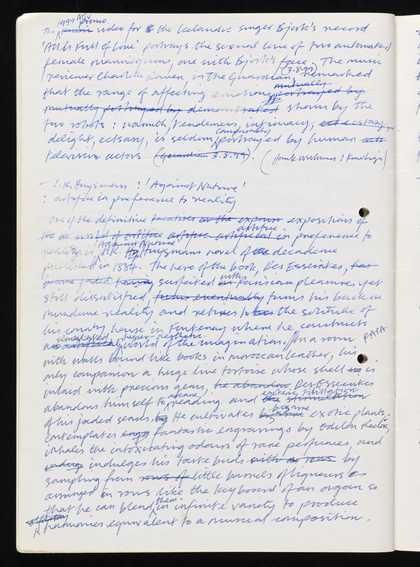 1999 promo
The video for the Icelandic singer Bjork's record
'All is Full of Love' portrays the sexual love of two automated
female mannequins, one with Bjork's face. The music
reviewer Charlie in the Guardian (7.8.99) remarked
that the range of affecting emotions
mutually shown by the
two robots: warmth, tenderness, intimacy,
delight, ecstasy, is seldom portrayed by human
television actors. (Guardian 7.8.99)
- J.K. Huysmans: 'Against Nature'
: artifice in preference to reality
One of the definitive expositions of
the artifice in preference to
reality is 'Against Nature' J.K. Huysmans novel of decadence
published in 1884. The hero of the book, Des Esseintes,
surfeited with Parisian pleasures, yet
still dissatisfied, turns his back on
mundane reality and retires to the solitude of
his country house in Fontenay where he constructs
world of the imagination. In a room
with walls bound like books in moroccan leather, his
only companion a large live tortoise whose shell is
inlaid with precious gems, Des Esseintes
abandons himself to reading and
of his jaded senses. He cultivates bizarre exotic plants,
contemplates fantastic engravings by Odilon Redon,
inhales the intoxicating odours of rare perfumes, and
indulges his taste buds by
sampling from little barrels of liqueurs
arranged in rows like the keyboard of an organ so
that he can blend them in infinite variety to produce
harmonies equivalent to a musical composition.